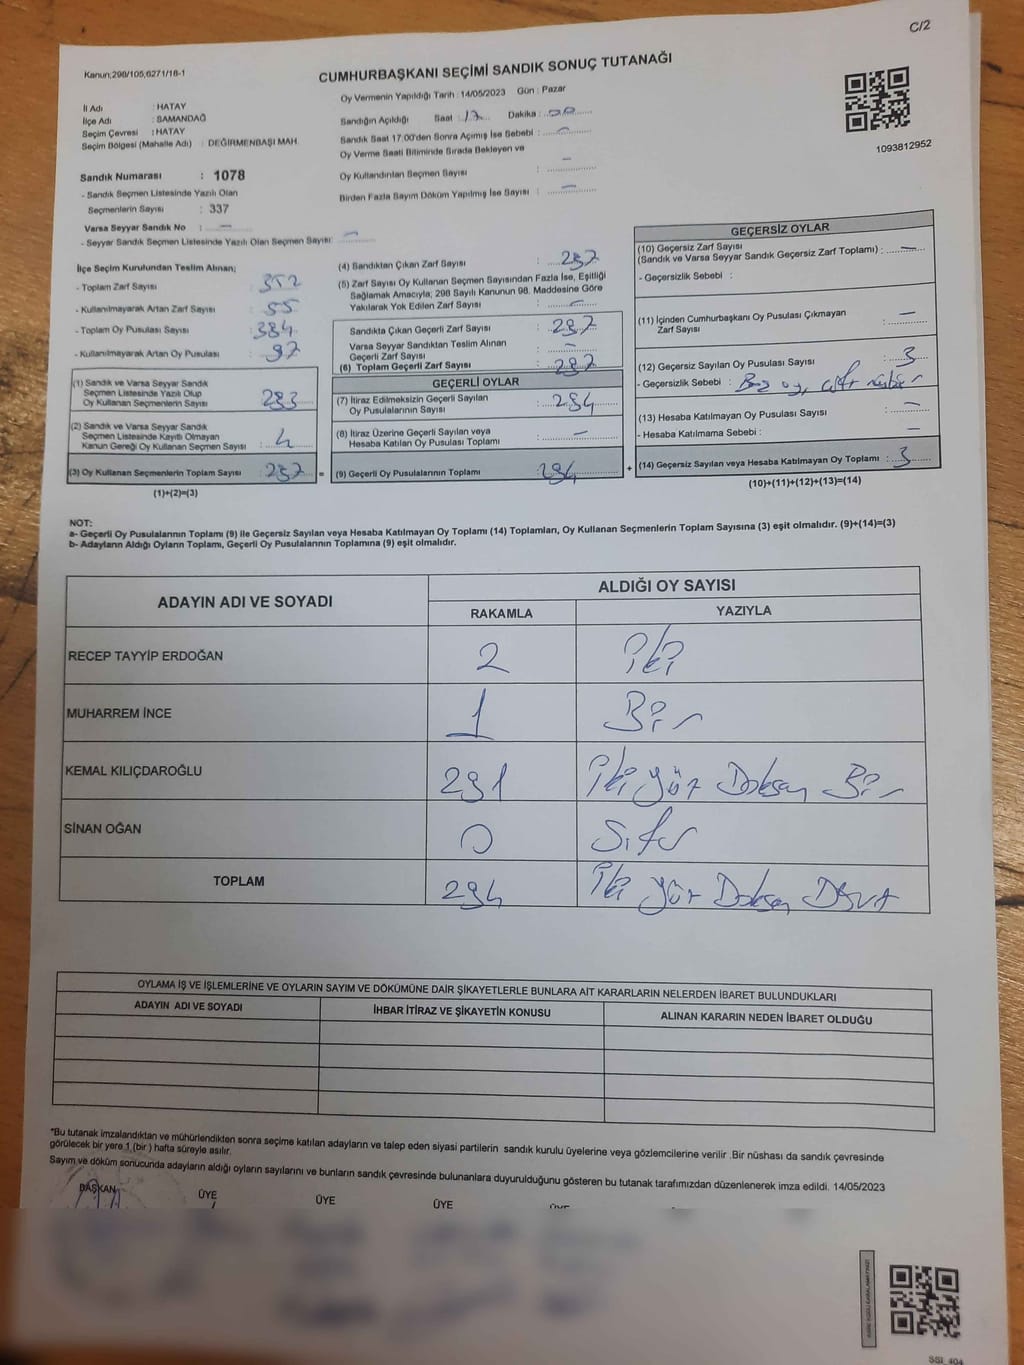 C/2
Kanun;298/105,6271/18-1
CUMHURBAŞKANI SEÇİMİ SANDIK SONUÇ TUTANAĞI
İl Adı : HATAY
İlçe Adı : SAMANDAĞ
Seçim Çevresi : HATAY
Seçim Bölgesi (Mahalle Adı) : DEĞİRMENBAŞI MAH.
Sandık Numarası : 1078
- Sandık Seçmen Listesinde Yazılı Olan
Seçmenlerin Sayısı : 337
Varsa Seyyar Sandık No : —
- Seyyar Sandık Seçmen Listesinde Yazılı Olan Seçmen Sayısı: —
Oy Vermenin Yapıldığı Tarih : 14/05/2023 Gün : Pazar
Sandığın Açıldığı Saat : 17 Dakika : 00
Sandık Saat 17:00'den Sonra Açmış İse Sebebi : —
Oy Verme Saati Bitiminde Sırada Bekleyen ve
Oy Kullandırılan Seçmen Sayısı : —
Birden Fazla Sayım Döküm Yapılmış İse Sayısı : —
1093812952
İlçe Seçim Kurulundan Teslim Alınan;
- Toplam Zarf Sayısı : 352
- Kullanılmayarak Artan Zarf Sayısı : 55
- Toplam Oy Pusulası Sayısı : 384
- Kullanılmayarak Artan Oy Pusulası : 97
(1) Sandık ve Varsa Seyyar Sandık
Seçmen Listesinde Yazılı Olup
Oy Kullanan Seçmenlerin Sayısı : 293
(2) Sandık ve Varsa Seyyar Sandık
Seçmen Listesinde Kayıtlı Olmayan
Kanun Gereği Oy Kullanan Seçmen Sayısı : 4
(3) Oy Kullanan Seçmenlerin Toplam Sayısı : 297 =
(1)+(2)=(3)
(4) Sandıktan Çıkan Zarf Sayısı : 297
(5) Zarf Sayısı Oy Kullanan Seçmen Sayısından Fazla İse, Eşitliği
Sağlamak Amacıyla; 298 Sayılı Kanunun 98. Maddesine Göre
Yakılarak Yok Edilen Zarf Sayısı : —
Sandıkta Çıkan Geçerli Zarf Sayısı : 297
Varsa Seyyar Sandıktan Teslim Alınan
Geçerli Zarf Sayısı : —
(6) Toplam Geçerli Zarf Sayısı : 297
GEÇERLİ OYLAR
(7) İtiraz Edilmeksizin Geçerli Sayılan
Oy Pusulalarının Sayısı : 294
(8) İtiraz Üzerine Geçerli Sayılan veya
Hesaba Katılan Oy Pusulası Toplamı : —
(9) Geçerli Oy Pusulalarının Toplamı : 294 +
GEÇERSİZ OYLAR
(10) Geçersiz Zarf Sayısı
(Sandık ve Varsa Seyyar Sandık Geçersiz Zarf Toplamı) : —
- Geçersizlik Sebebi :
(11) İçinden Cumhurbaşkanı Oy Pusulası Çıkmayan
Zarf Sayısı : —
(12) Geçersiz Sayılan Oy Pusulası Sayısı : 3
- Geçersizlik Sebebi : Boş oy, çift mühür
(13) Hesaba Katılmayan Oy Pusulası Sayısı : —
- Hesaba Katılmama Sebebi : —
(14) Geçersiz Sayılan veya Hesaba Katılmayan Oy Toplamı : 3
(10)+(11)+(12)+(13)=(14)
NOT:
a- Geçerli Oy Pusulalarının Toplamı (9) ile Geçersiz Sayılan veya Hesaba Katılmayan Oy Toplamı (14) Toplamları, Oy Kullanan Seçmenlerin Toplam Sayısına (3) eşit olmalıdır. (9)+(14)=(3)
b- Adayların Aldığı Oyların Toplamı, Geçerli Oy Pusulalarının Toplamına (9) eşit olmalıdır.
ADAYIN ADI VE SOYADI
ALDIĞI OY SAYISI
RAKAMLA YAZIYLA
RECEP TAYYİP ERDOĞAN 2 iki
MUHARREM İNCE 1 Bir
KEMAL KILIÇDAROĞLU 291 iki yüz Doksan Bir
SİNAN OĞAN 0 Sıfır
TOPLAM 294 iki yüz Doksan Dört
OYLAMA İŞ VE İŞLEMLERİNE VE OYLARIN SAYIM VE DÖKÜMÜNE DAİR ŞİKAYETLERLE BUNLARA AİT KARARLARIN NELERDEN İBARET BULUNDUKLARI
ADAYIN ADI VE SOYADI İHBAR İTİRAZ VE ŞİKAYETİN KONUSU ALINAN KARARIN NEDEN İBARET OLDUĞU
*Bu tutanak imzalandıktan ve mühürlendikten sonra seçime katılan adayların ve talep eden siyasi partilerin sandık kurulu üyelerine veya gözlemcilerine verilir .Bir nüshası da sandık çevresinde
görülecek bir yere 1 (bir ) hafta süreyle asılır.
Sayım ve döküm sonucunda adayların aldığı oyların sayılarını ve bunların sandık çevresinde bulunanlara duyurulduğunu gösteren bu tutanak tarafımızdan düzenlenerek imza edildi. 14/05/2023
BAŞKAN ÜYE ÜYE ÜYE ÜYE